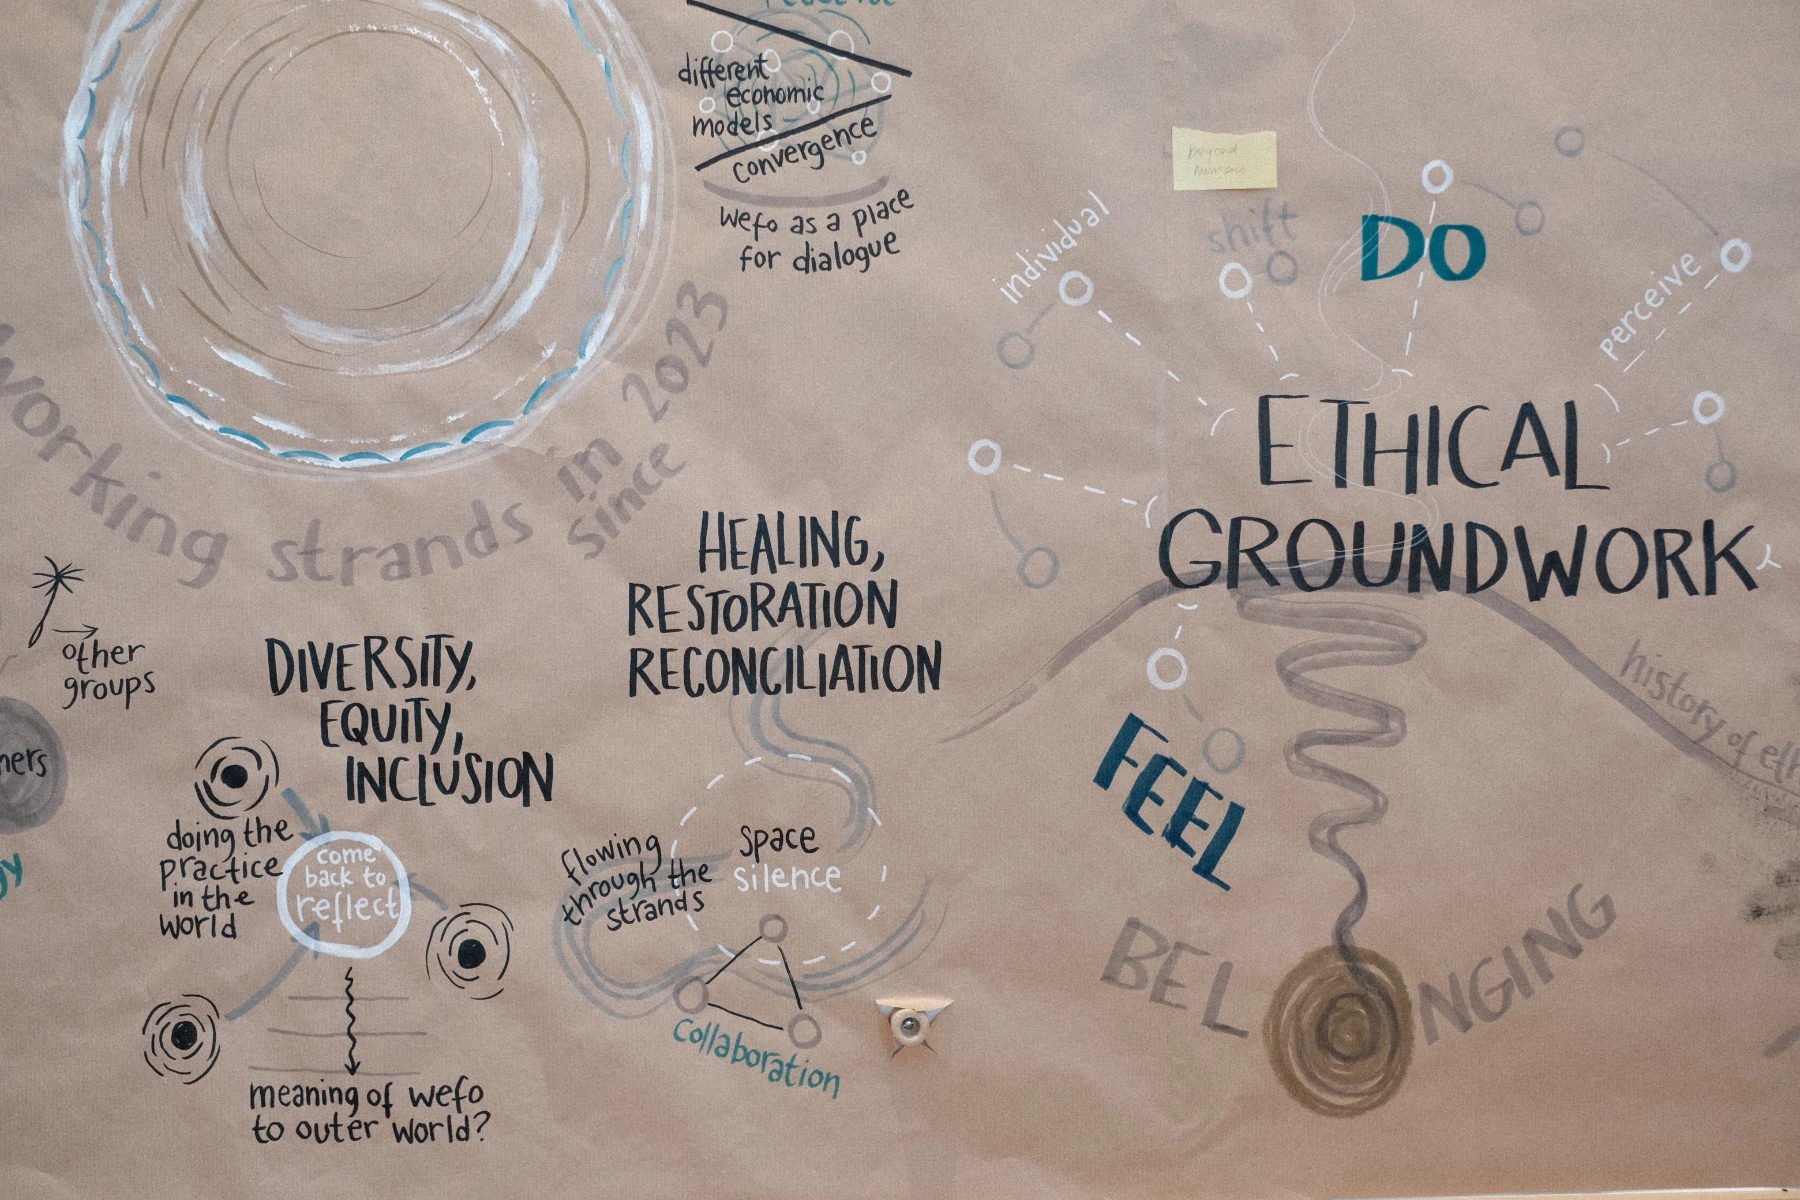 different
economic
models
convergence
wefo as a place
for dialogue
working strands in 2023
since
other
groups
DIVERSITY,
EQUITY,
INCLUSION
doing the
practice
in the
world
come
back to
reflect
meaning of wefo
to outer world?
HEALING,
RESTORATION
RECONCILIATION
flowing
through the
strands
space
silence
collaboration
beyond
human
individual
shift
DO
perceive
ETHICAL
GROUNDWORK
FEEL
history of eth
BELONGING